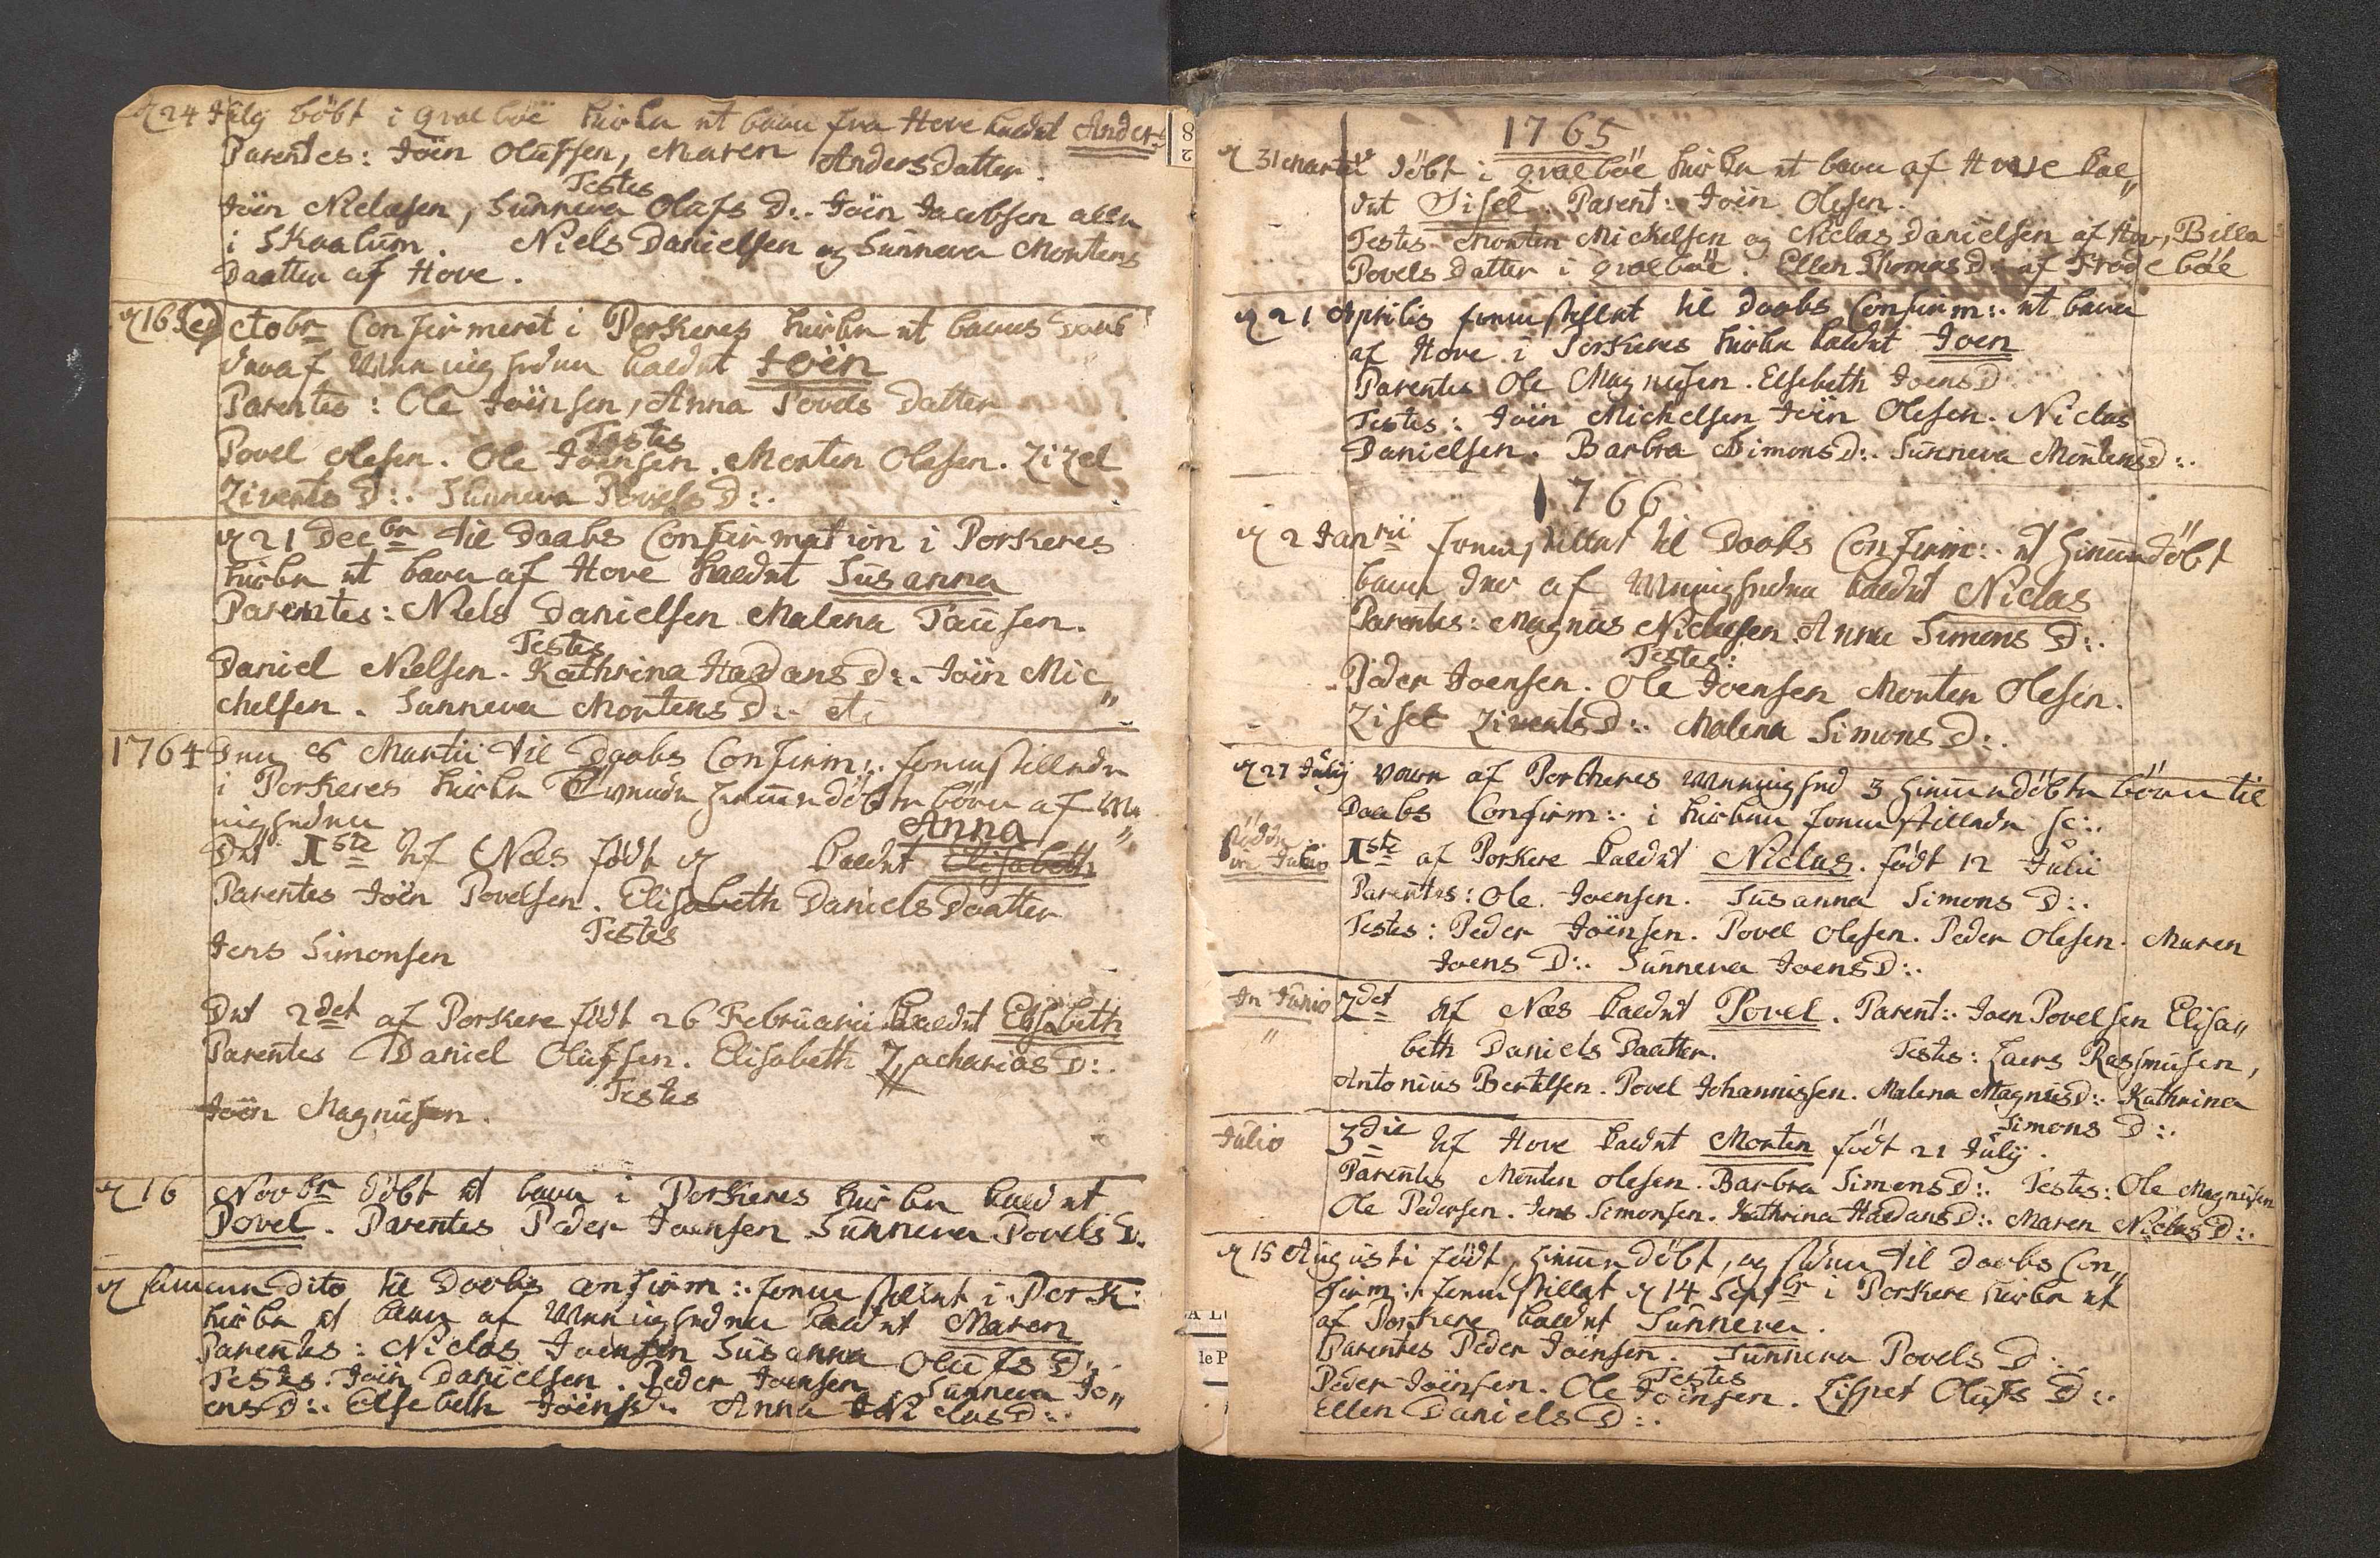 d 24 Julij döbt i qvalböe kirke et barn fra Hove kaldet Anders
Parentes: Joën Oluffsen, Maren Andersdatter.
Testes
Joën Niclasen, Sunneva Olufs D:. Joën Jacobsen alle
i Skaalum. Niels Danielsen og Sunneva Mortens
Daatter af Hove.
d 16 Octobr Confirmeret i Porkeres kirke et barns Daab
der af Menigheden kaldet Joën
Parentes: Ole Joënsen, Anna Povels Datter
Testes
Povel Olesen. Ole Joënsen. Morten Olesen. Zizel
Ziverts D:. Sunneva Povels D:.
d 21 Decbr til Daabs Confirmation i Porkeres
kirke et barn af Hove kaldet Susanna
Parentes: Niels Danielsen Malena Tausen.
Testes
Daniel Nielsen. Kathrina Haldans D:. Joën Mic„
chelsen. Sunneva Mortens D:. etc
1764 Den 8 Martii til Daabs Confirm:. fremstillede
i Porkeres kirke Tvende hiemmedöbte börn af Me„
nigheden
Anna
Det 1ste Af Næs födt d kaldet Elisabeth
Parentes Joën Povelsen. Elisabeth Daniels Daatter
Testes
Jens Simonsen
Det 2det af Porkere födt 26 Februarii kaldet Elisabeth
Parentes Daniel Oluffsen. Elisabeth Zacharias D:.
Testes
Joën Magnusen.
d 16 Novbr döbt et barn i Porkeres kirke kaldet
Povel. Parentes Peder Joensen Sunneva Povels D.
d samme Dito til Daabs Confirm:. fremstillet i Pork:
kirke et barn af Menigheden kaldet Maren
Parentes: Niclas Joensen Susanna Olufs D:.
Testes: Joën Danielsen. Peder Joensen. Sunneva Jo„
ens D:. Elsebeth Joëns D:. Anna Niclas D:.
1765
d 31 Martii döbt i qvalböe kirke et barn af Hove kal„
det Sisel. Parent: Joën Olesen.
Testes Morten Mickelsen og Niclas Danielsen af Hov, Billa
Povels datter i qvalböe. Ellen Thomas D: af Frodeböe
d 21 Aprilis fremstillet til Daabs Confirm:. et barn
af Hove i Porkeres kirke kaldet Joen
Parentes Ole Magnusen. Elsebeth Joens D
Testes: Joën Michelsen Joën Olesen. Niclas
Danielsen. Barbra Simons D:. Sunneva Mortens D:.
1766
d 2 Janrii fremstillet til Daabs Confirm:. et hiemmedöbt
barn der af Menigheden kaldet Niclas
Parentes: Magnus Niclasen. Anna Simons D:.
Testes:
Peder Joensen. Ole Joensen Morten Olesen.
Zisel Ziverts D:. Malena Simons D:.
d 27 Julij vare af Porkeres Menighed 3 hiemmedöbte börn til
Daabs Confirm:. i kirken fremstillede sc:.
födde
in Julio
1ste af Porkere kaldet Niclas. födt 12 Julii
Parentes: Ole Joensen. Susanna Simons D:.
Testes: Peder Joënsen. Povel Olesen. Peder Olesen. Maren
Joens D:. Sunneva Joens D:.
In Junio 2det Af Næs kaldet Povel. Parent:. Joen Povelsen Elisa„
beth Daniels Daatter. Testes: Laers Rasmusen,
Antonius Bertelsen. Povel Johannissen. Malena Magnus D:. Kathrina
Simons D:.
Julio 3die Af Hove kaldet Morten födt 21 Julij.
Parentes Morten Olesen. Barbra Simons D:. Testes: Ole Magnusen
Ole Pedersen. Jens Simonsen. Kathrina Haldans D:. Maren Niclas D:.
d 15 Augusti födt, hiemmedöbt, og siden til Daabs Con„
firm:. fremstillet d 14 Septbr i Porkere kirke et
af Porkere kaldet Sunneva.
Parentes Peder Joënsen. Sunneva Povels D:.
Testes
Peder Joënsen. Ole Joënsen. Lispet Olufs D:.
Ellen Daniels D:.